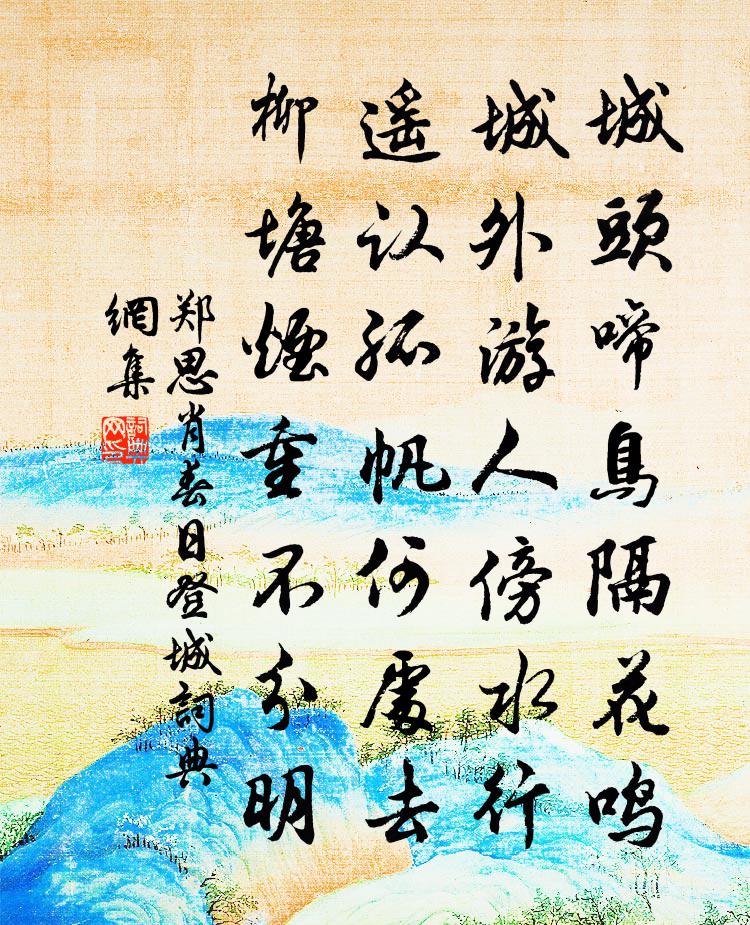 城頭啼鳥隔花鸣
城外游人傍水行
遥认孤帆何處去
柳塘煙重不分明
郑思肖春日登城詞典
網集
詞典
网印